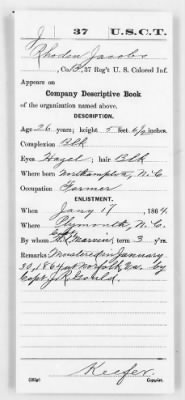 J | 37 | U.S.C.T.
Rhoden Jacobs
Co. B, 37 Reg't U. S. Colored Inf.
Appears on
Company Descriptive Book
of the organization named above.
DESCRIPTION.
Age 26 years; height 5 feet 6½ inches.
Complexion Blk
Eyes Hazel; hair Blk
Where born Northampton, N.C.
Occupation Farmer
ENLISTMENT.
When Jany 17, 1864.
Where Plymouth, N.C.
By whom Marvin; term 3 y'rs.
Remarks Mustered in January
30, 1864 at Norfolk, Va. by
Capt. J. R. Gould
Keefer
Copyist.